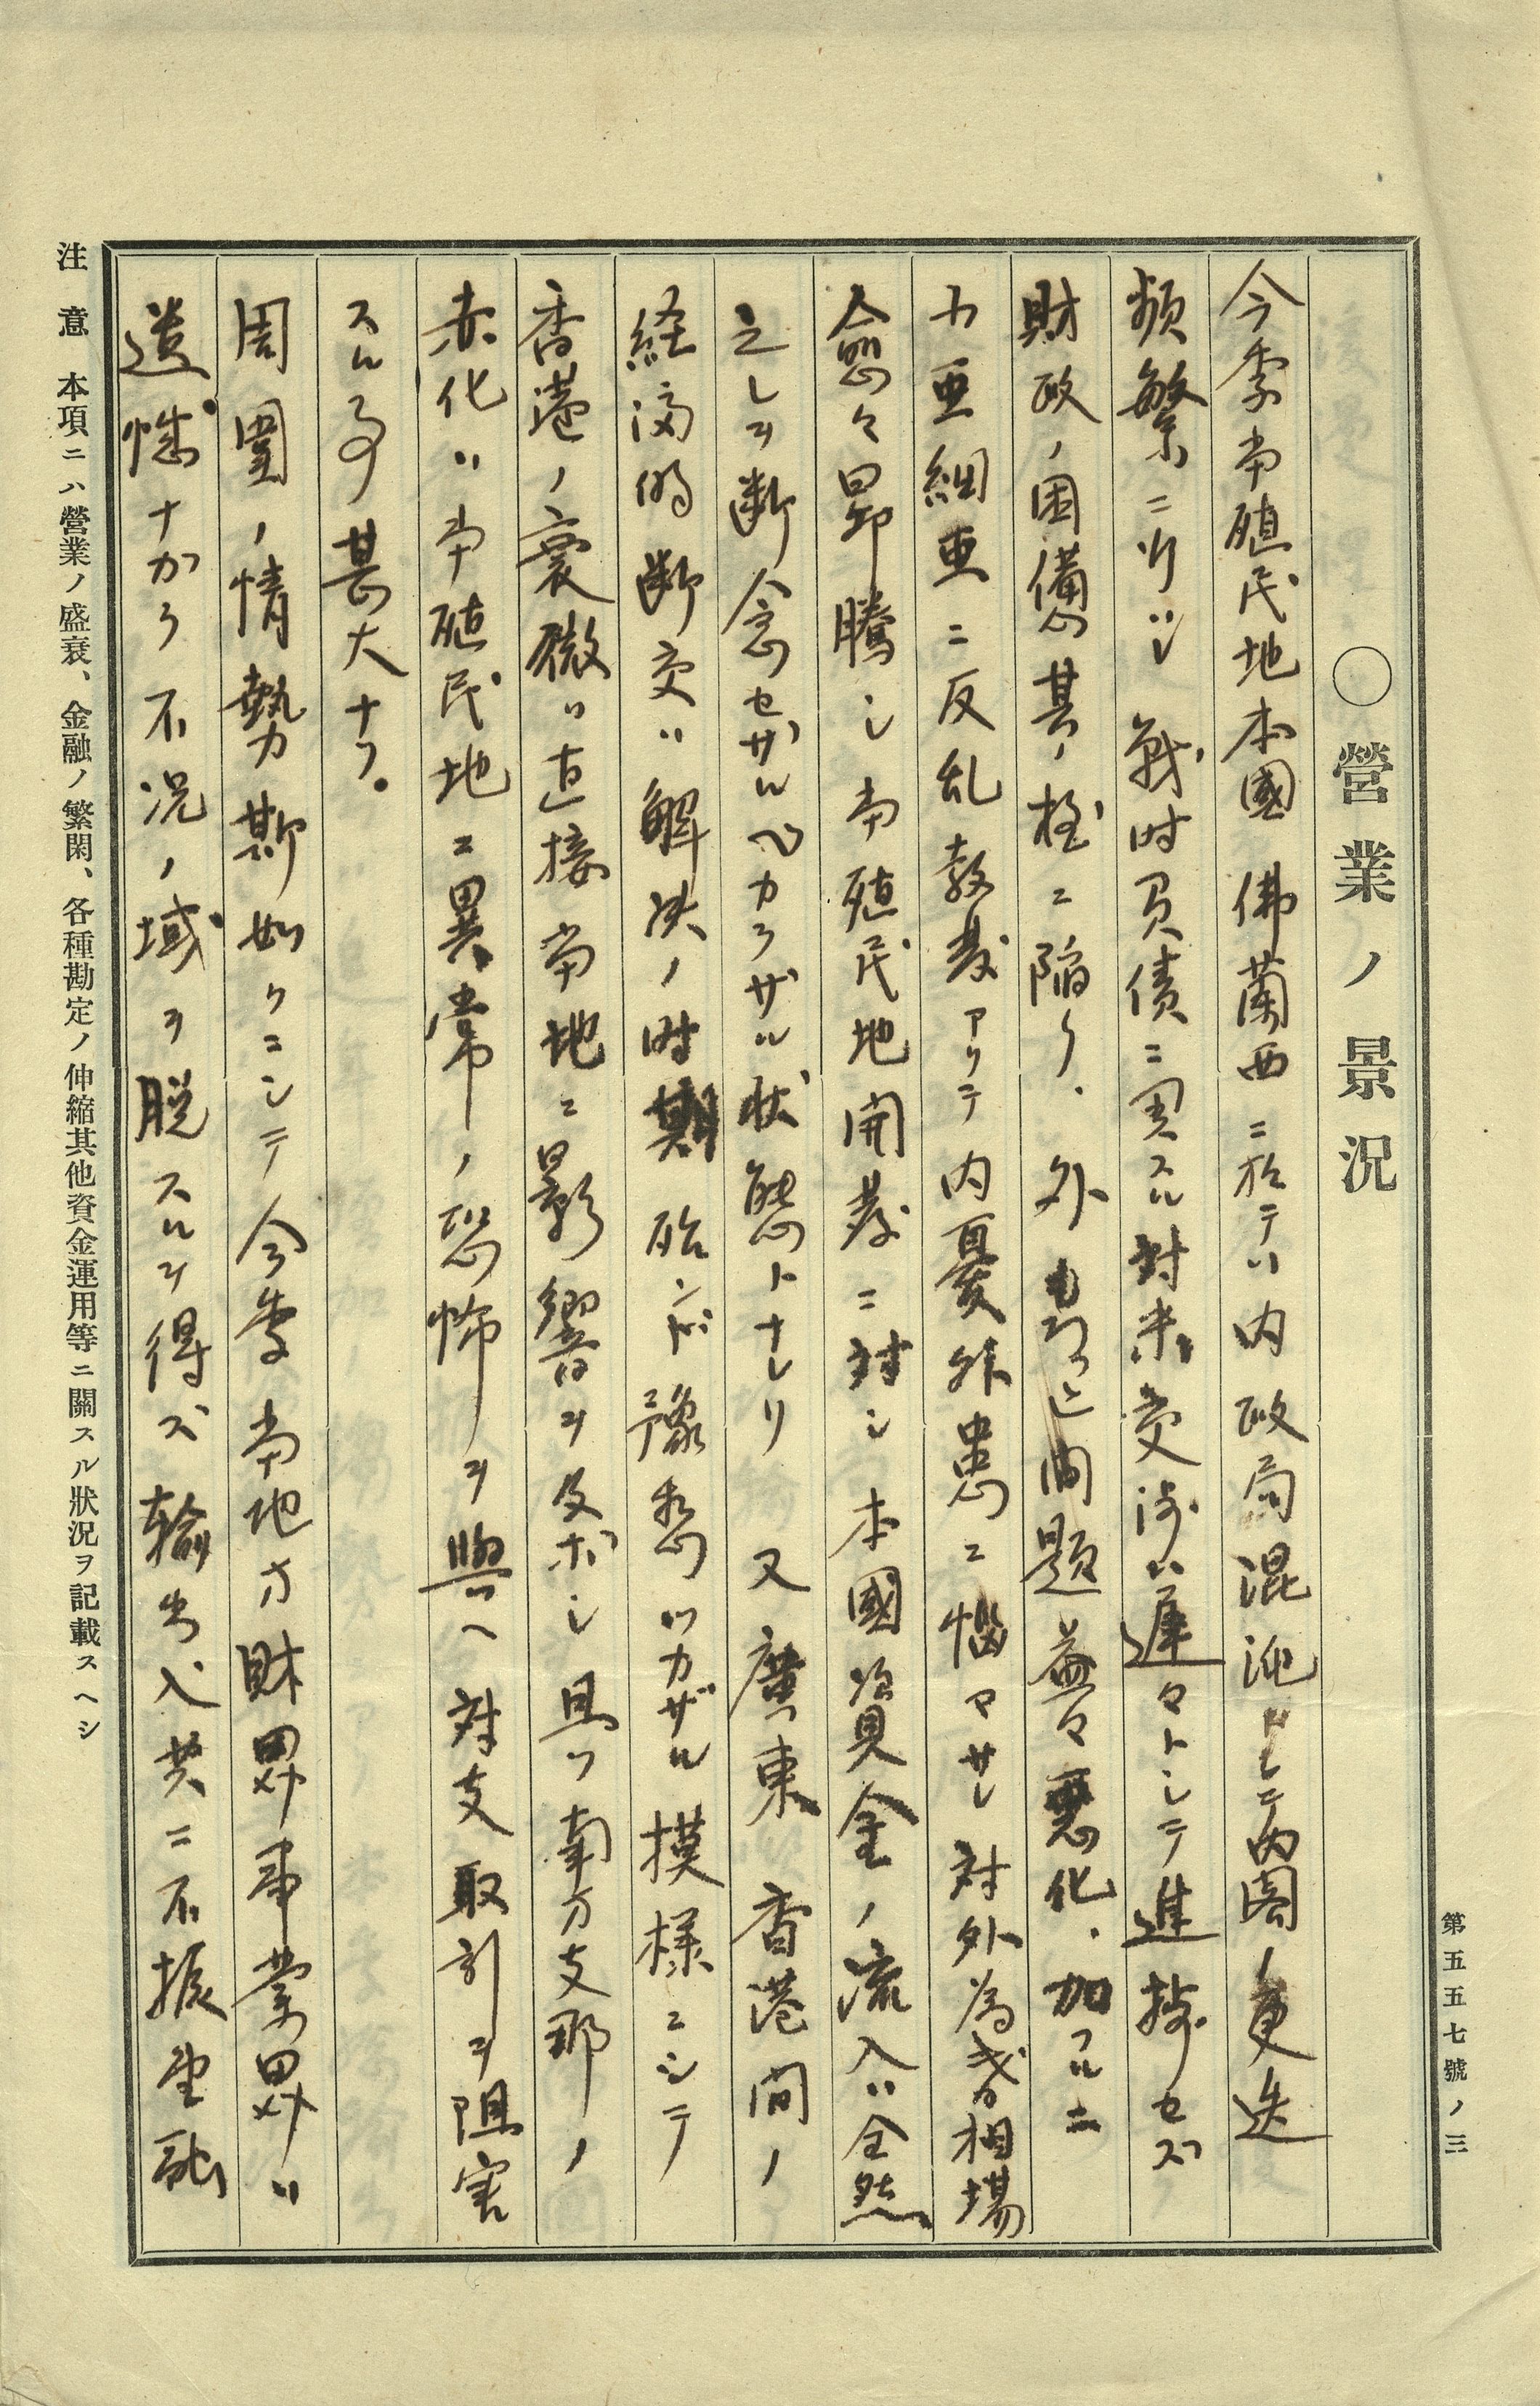 第五五七號ノ三
〇營業ノ景況
今季當殖民地本國佛蘭西ニ於テハ内政局混沌トシテ内閣ノ更迭
頻繁ニ渉リシ戰時負債ニ関スル対米交渉ハ遅々トシテ進捗セズ
財政ノ困憊其ノ極ニ陥リ、外モロッコ問題益々悪化、加フルニ
小亜細亜ニ反乱勃発アリテ内憂外患ニ悩マサレ対外為替相場
愈々昂騰シ当殖民地開発ニ対シ本國資金ノ流入ハ全然
之レヲ断念セザルベカラザル状態トナレリ又廣東香港間ノ
経済的断交ハ解決ノ時期殆ンド豫想ツカザル摸様ニシテ
香港ノ衰微ハ直接当地ニ影響ヲ及ボシ且ツ南方支那ノ
赤化ハ当殖民地ニ異常ノ恐怖ヲ與ヘ対支取引ヲ阻害
スル事甚大ナリ。
周圍ノ情勢斯如クニシテ今季当地方財界事業界ハ
遺憾ナカラ不況ノ域ヲ脱スルヲ得ズ輸出入共ニ不振金融
注意 本項ニハ營業ノ盛衰、金融ノ繁閑、各種勘定ノ伸縮其他資金運用等ニ關スル狀況ヲ記載スヘシ